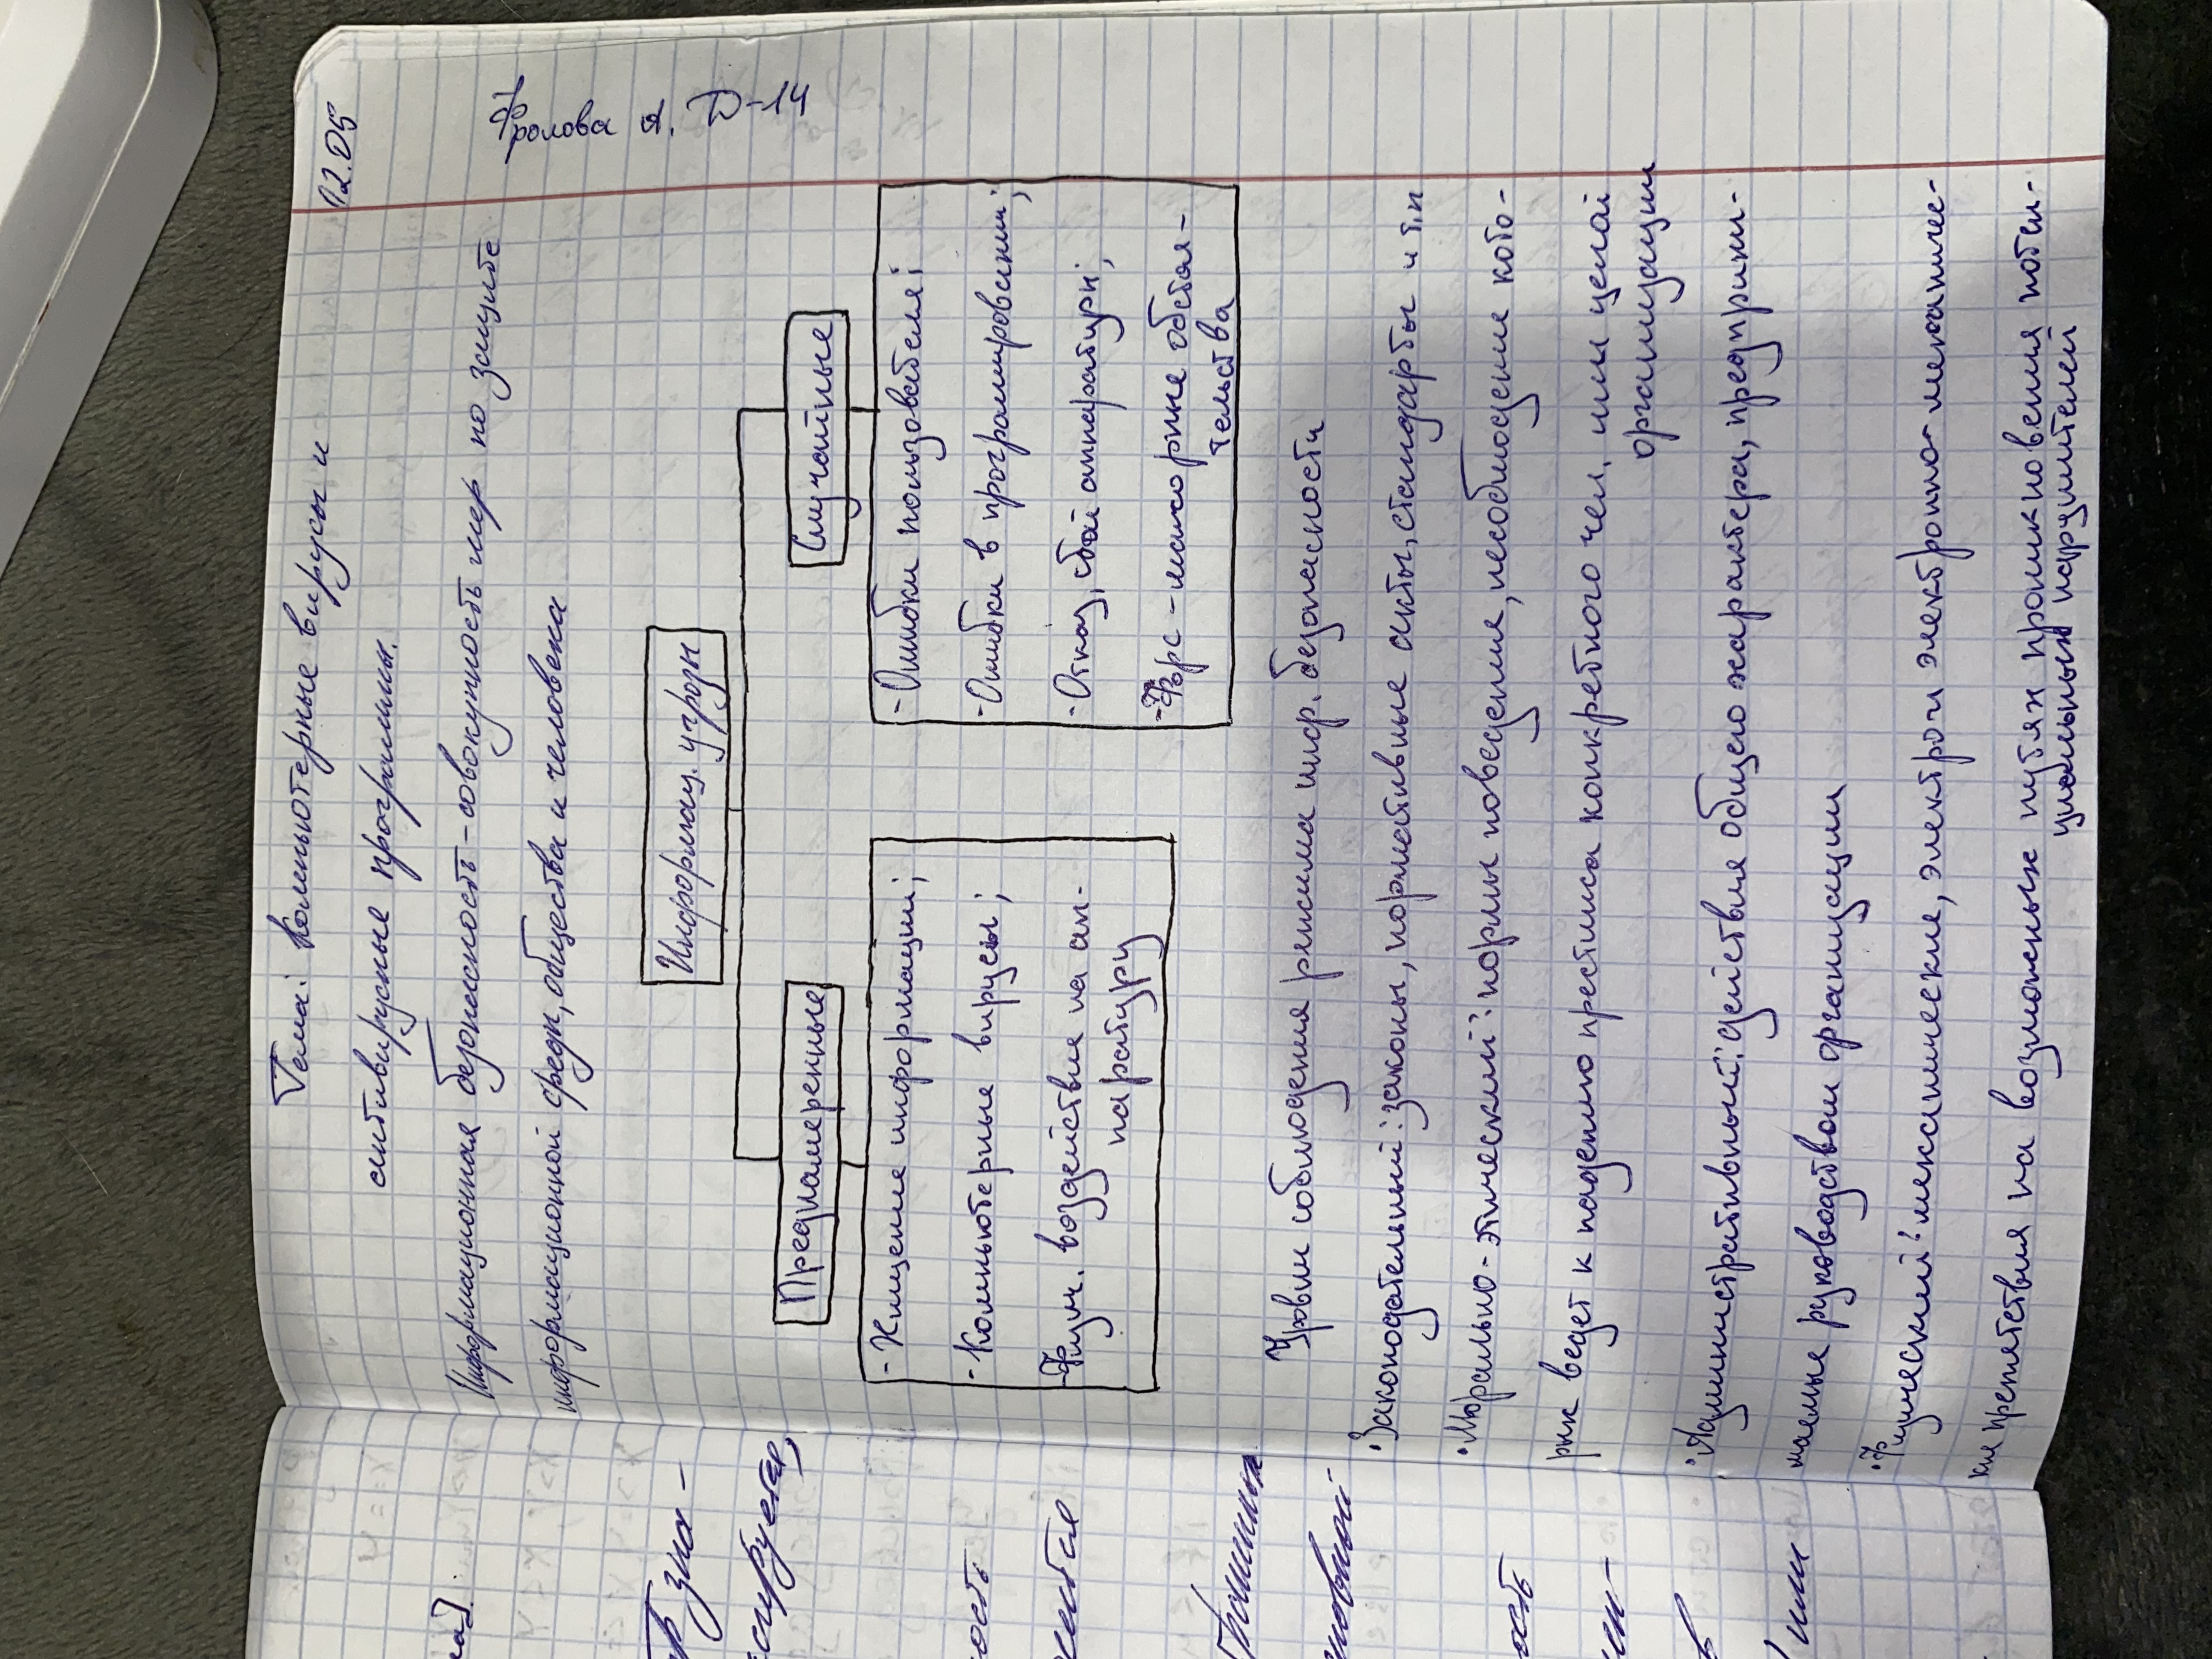 12.05
Фролова А. Д-14
Тема: Компьютерные вирусы и
антивирусные программы.
Информационная безопасность - совокупность мер по защите
информационной среды, общества и человека
Информац. угрозы
Преднамеренные
- Хищение информации;
- Компьютерные вирусы;
- Физич. воздействие на ап-
паратуру
Случайные
- Ошибки пользователя;
- Ошибки в програмировании;
- Отказ, сбой аппаратуры;
- Форс-мажорные обстоя-
тельства
Уровни соблюдения режима инф. безопасности
· Законодательный: законы, нормативные акты, стандарты и т.п
· Морально-этический: нормы поведения, несоблюдение кото-
рых ведет к падению престижа конкретного чел. или целой
организации
· Административный: действия общего характера, предприни-
маемые руководством организации
· Физический: механические, электро и электронно-механичес-
кие препятствия на возможных путях проникновения потен-
циальных нарушителей
ость
ость
или